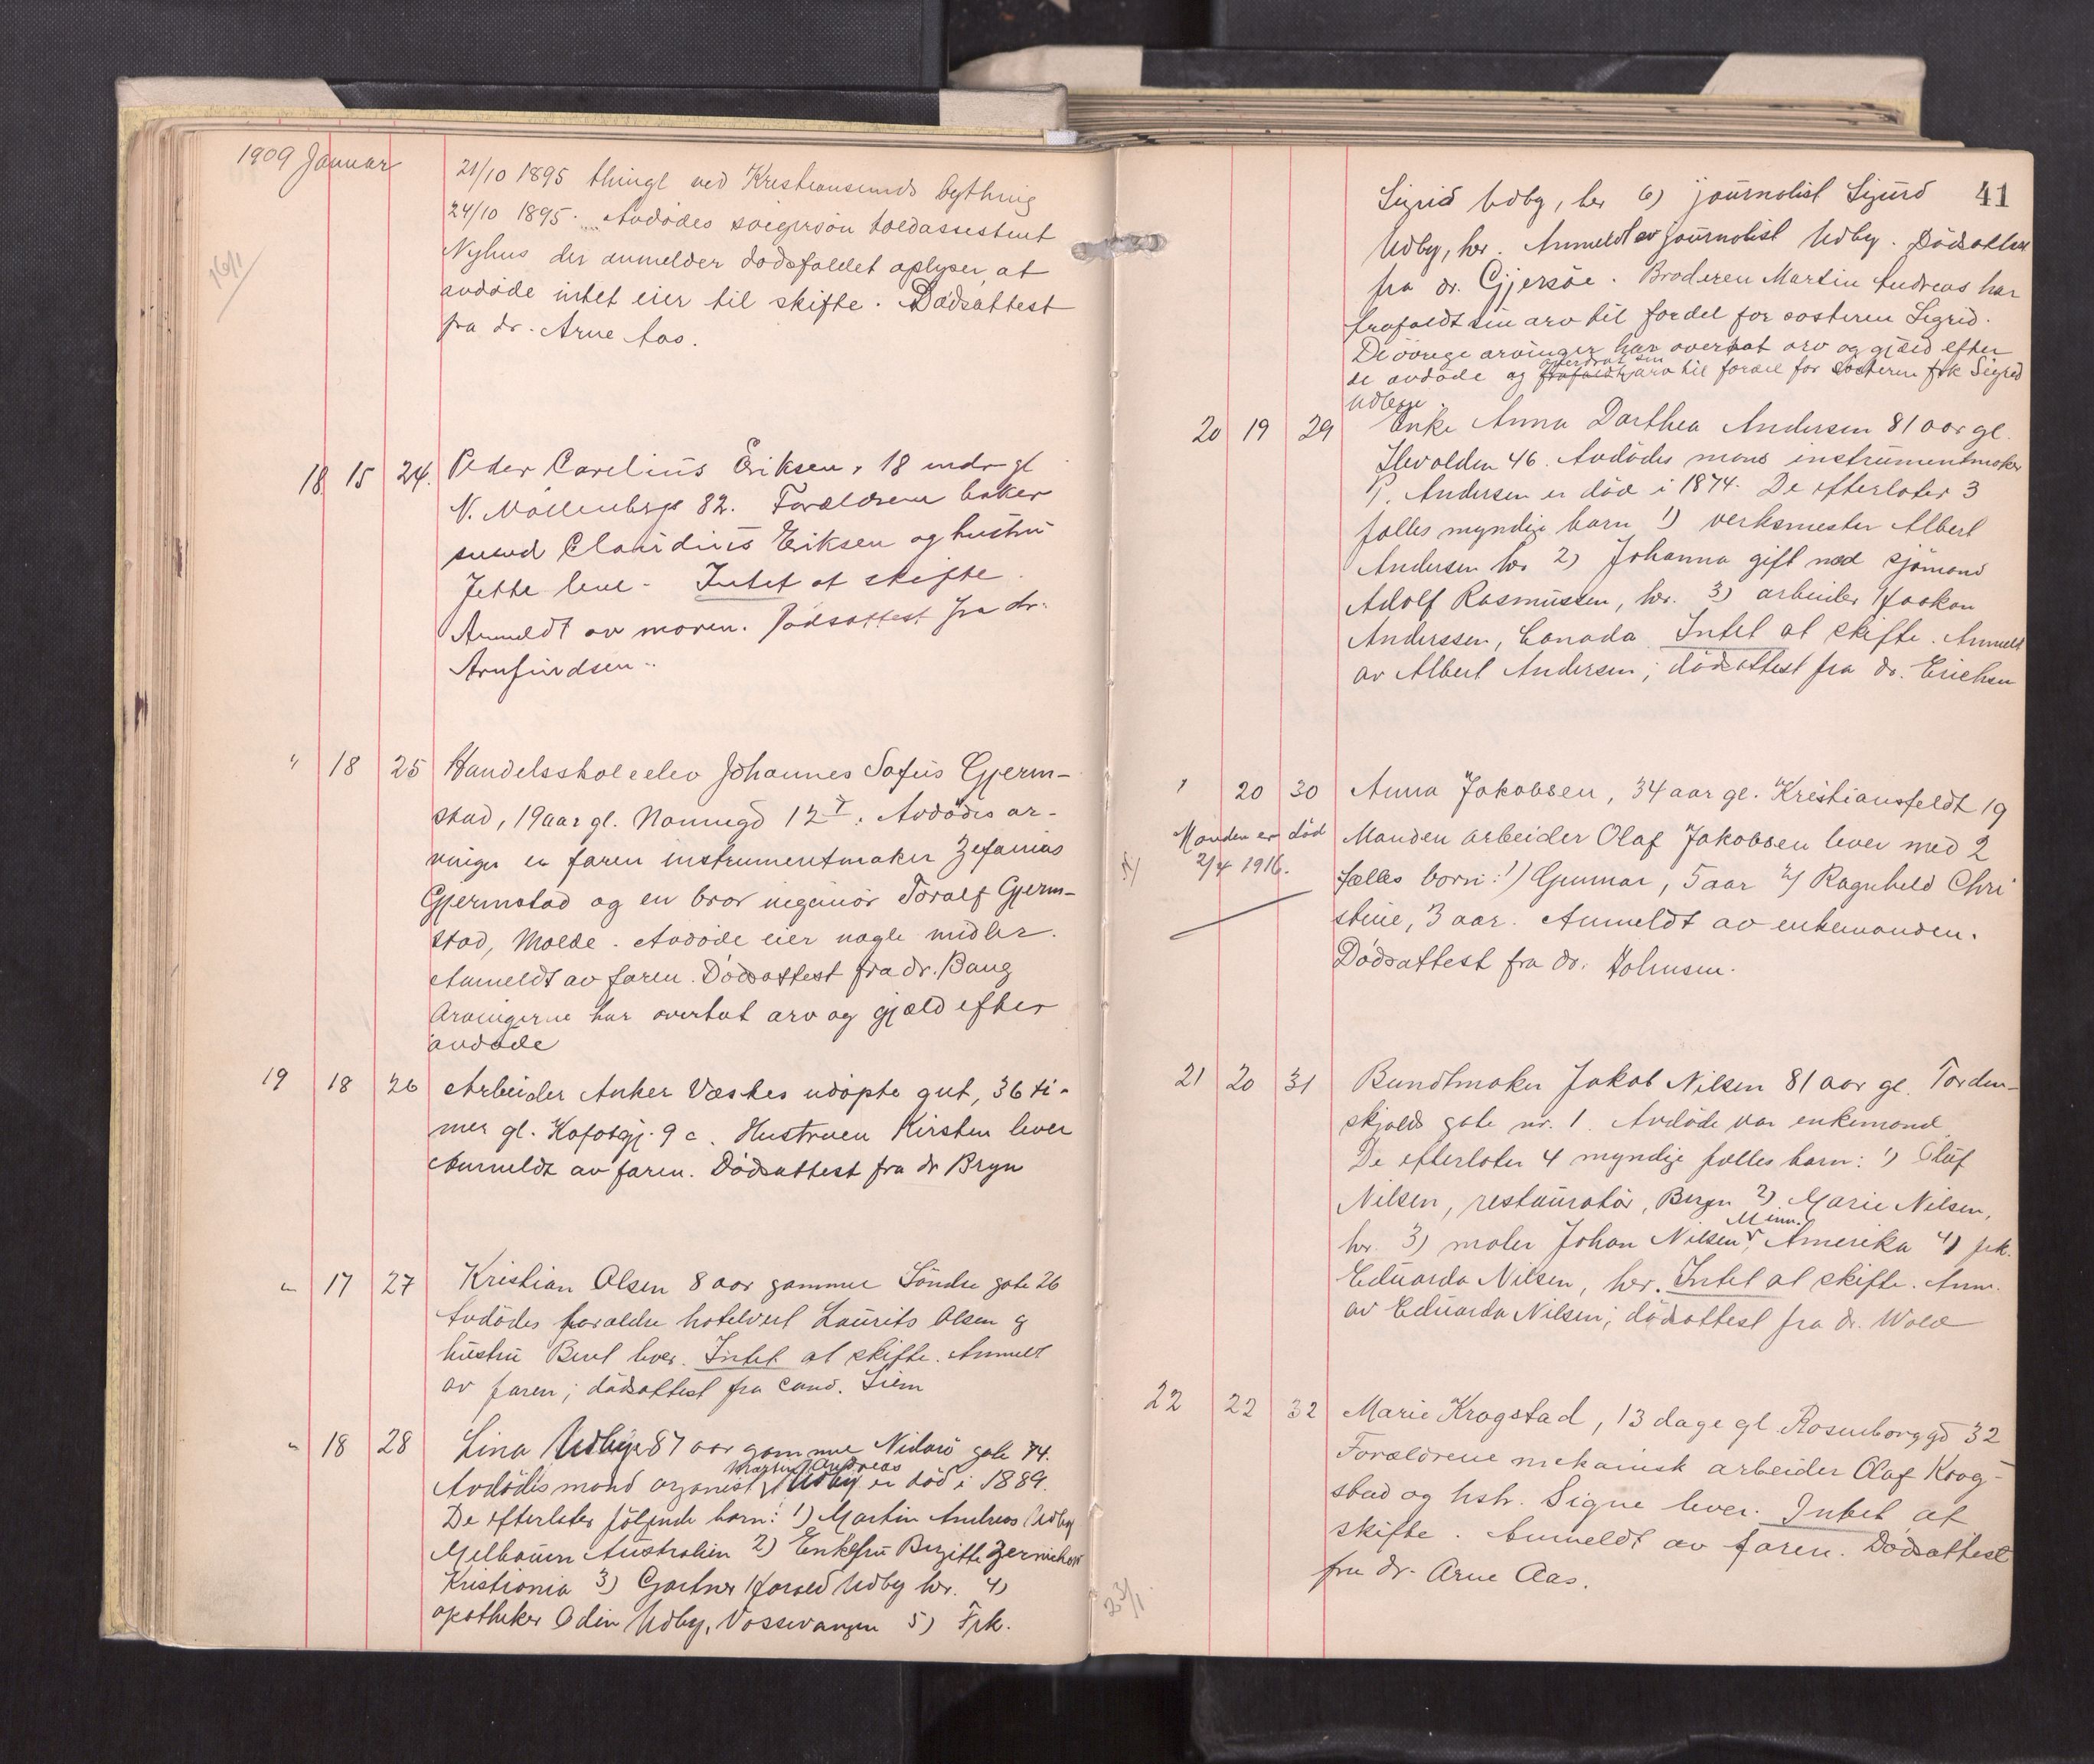 1909 Januar
21/10 1895 thingl ved Kristiansunds bything
24/10 1895. Avdødes svigersøn toldassistent
Nyhus der anmelder dødsfaldet oplyser at
avdøde intet eier til skifte. Dødsattest
fra dr. Arne Aas.
18 15 24. Peder Carelius Eriksen, 18 mdr gl
N. Møllenbergs 82. Forældrene baker
svend Claudius Eriksen og hustru
Jette lever - Intet at skifte.
Anmeldt av moren. Dødsattest fra dr.
Arnfindsen..
" 18 25 Handelsskoleelev Johannes Sofus Gjerm-
stad, 19 aar gl. Nonnegd 12 I. Avdødes ar-
vinger er faren instrumentmaker Zefanias
Gjermstad og en bror ingeniør Toralf Gjerm-
stad, Molde. Avdøde eier nogle midler.
Anmeldt av faren. Dødsattest fra dr. Bang
Arvingerne har overtat arv og gjæld efter
avdøde
19 18 26 Arbeider Anker Væskes udøpte gut, 36 ti-
mer gl. 9 c. Hustruen Kirsten lever
Anmeldt av faren. Dødsattest fra dr Bryn
" 17 27 Kristian Olsen 8 aar gammel Søndre gate 26
Avdødes forældre hotelvert Laurits Olsen og
hustru Berit lever. Intet at skifte. Anmeldt
av faren; dødsattest fra cand. Siem
" 18 28 Lina Udbye 87 aar gammel Nidarø gate 74.
Martin Andreas
Avdødes mand organist Udby er død i 1889.
De efterlater følgende barn: 1) Martin Andreas Udby
Melbourn Australien 2) Enkefru Birgitte
Kristiania 3) Gartner Harald Udby her. 4)
apotheker Odin Udby, Vossevangen 5) Frk.
41
Sigrid Udby, her 6) journalist Sigurd
Udby, her. Anmeldt av journalist Udby. Dødsattest
fra dr. Gjersøe. Broderen Martin Andreas har
frafaldt sin arv til fordel for søsteren Sigrid.
De øvrige arvinger har overtat arv og gjæld efter
overdrat sin
de avdøde og frafaldt arv til fordel for søsteren frk Sigrid
Udbye.
20 19 29 Enke Anna Dorthea Andersen 81 aar gl.
Ilevolden 46. Avdødes mand instrumentmaker
P. Andersen er død i 1874. De efterlater 3
fælles myndige barn 1) verksmester Albert
Andersen her 2) Johanna gift med sjømand
Adolf Rasmussen, her. 3) arbeider Haakon
Anderssen, Canada. Intet at skifte. Anmeldt
av Albert Andersen; dødsattest fra dr. Erichsen
" 20 30 Anna Jakobsen, 34 aar gl. Kristiansfeldt 19
Manden er død
2/4 1916.
Manden arbeider Olaf Jakobsen lever med 2
fælles born: 1) Gunnar, 5 aar 2) Ragnhild Chri
stine, 3 aar. Anmeldt av enkemanden.
Dødsattest fra dr. Holmsen.
21 20 31 Bundtmaker Jakob Nilsen 81 aar gl. Torden-
skjolds gate nr. 1. Avdøde var enkemand.
De efterlater 4 myndige fælles barn: 1) Oluf
Nilsen, restauratør, Bergen 2) Marie Nilsen,
Minn.
her. 3) maler Johan Nilsen, Amerika 4) frk.
Eduarda Nilsen, her. Intet at skifte. Anm.
av Eduarda Nilsen; dødsattest fra dr. Wold
22 22 32 Marie Krogstad, 13 dage gl Rosenborggd 32
Forældrene mekanisk arbeider Olaf Krog-
stad og hstr. Signe lever. Intet at
skifte. Anmeldt av faren. Dødsattest
fra dr. Arne Aas.
23/1